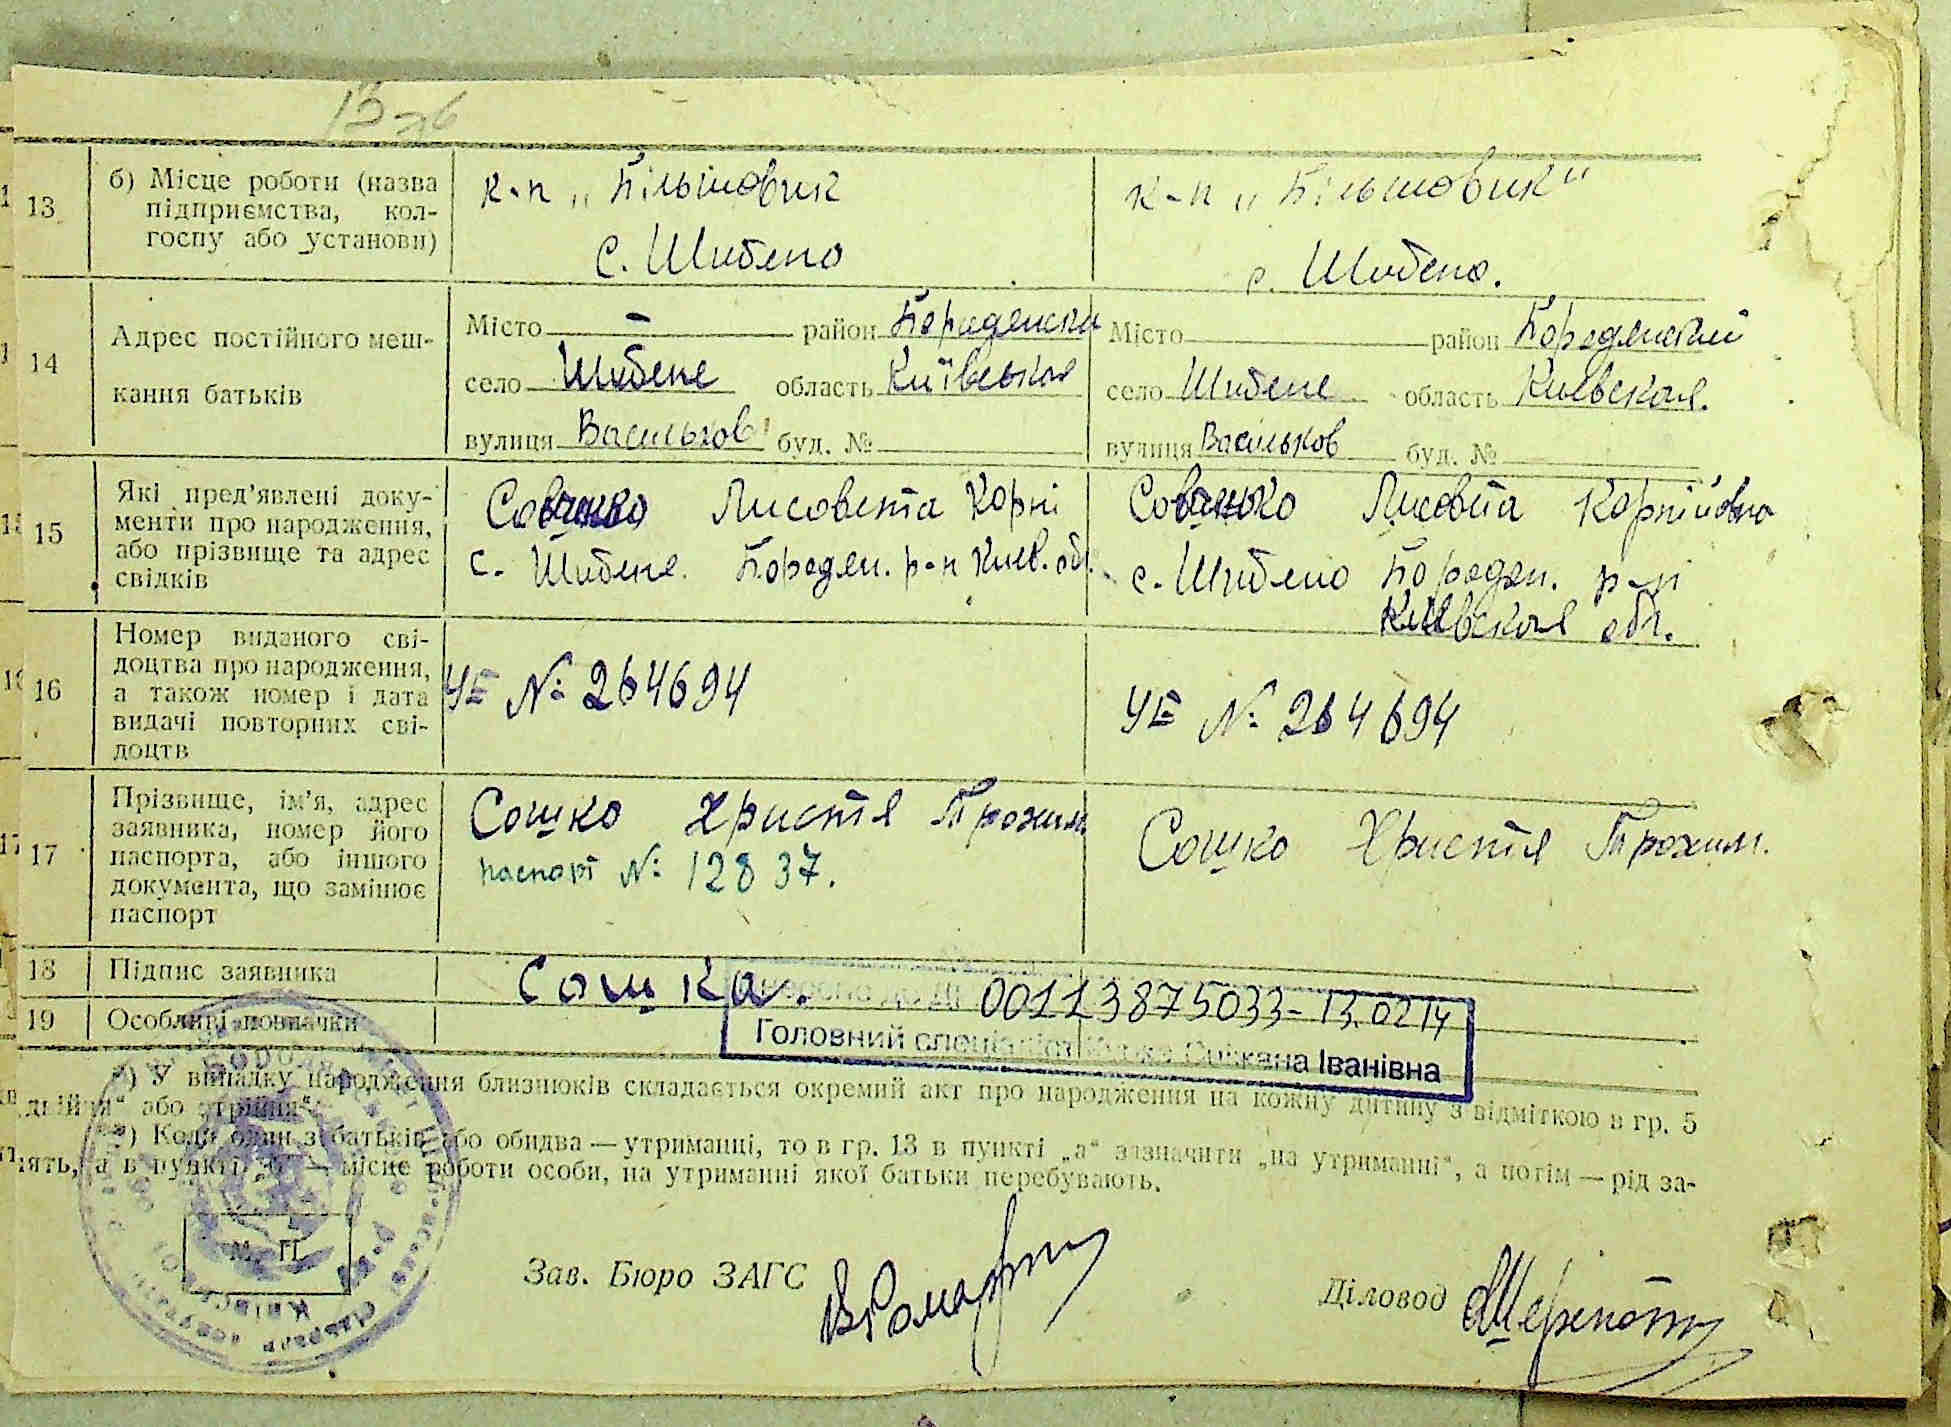 13 зв
13
б) Місце роботи (назва
підприємства, кол-
госпу або установи)
к-п „Більшовик
с. Шибено
к-п „Більшовик"
с. Шибено.
14
Адрес постійного меш-
кання батьків
Місто — район Бородянски
село Шибене область Київська
вулиця Васильков буд. №
Місто район Бородянский
село Шибене область Киевская.
вулиця Васильков буд. №
15
Які пред'явлені доку-
менти про народження,
або прізвище та адрес
свідків
Лисовета Корні
с. Шибене. Бородян. р-н Киев. обл.
Лисовета Корнійовна
с. Шибено Бородян. р-н
Киевская обл.
16
Номер виданого сві-
доцтва про народження,
а також номер і дата
видачі повторних сві-
доцтв
УЕ № 264694
УЕ № 264694
17
Прізвище, ім'я, адрес
заявника, номер його
паспорта, або іншого
документа, що замінює
паспорт
Сошко Христя Трохим
паспорт № 12837.
Сошко Христя Трохим.
18
Підпис заявника
Сошка.
19
Особливі позначки
00113875033-13.0214
Головний спеціаліст Іванівна
*) У випадку народження близнюків складається окремий акт про народження на кожну дитину з відміткою в гр. 5
„двійня" або „трійня".
**) Коли один з батьків або обидва — утриманці, то в гр. 13 в пункті „а" зазначити „на утриманні", а потім — рід за-
нять, а в пункті „б" — місце роботи особи, на утриманні якої батьки перебувають.
М. П.
Зав. Бюро ЗАГС
Діловод